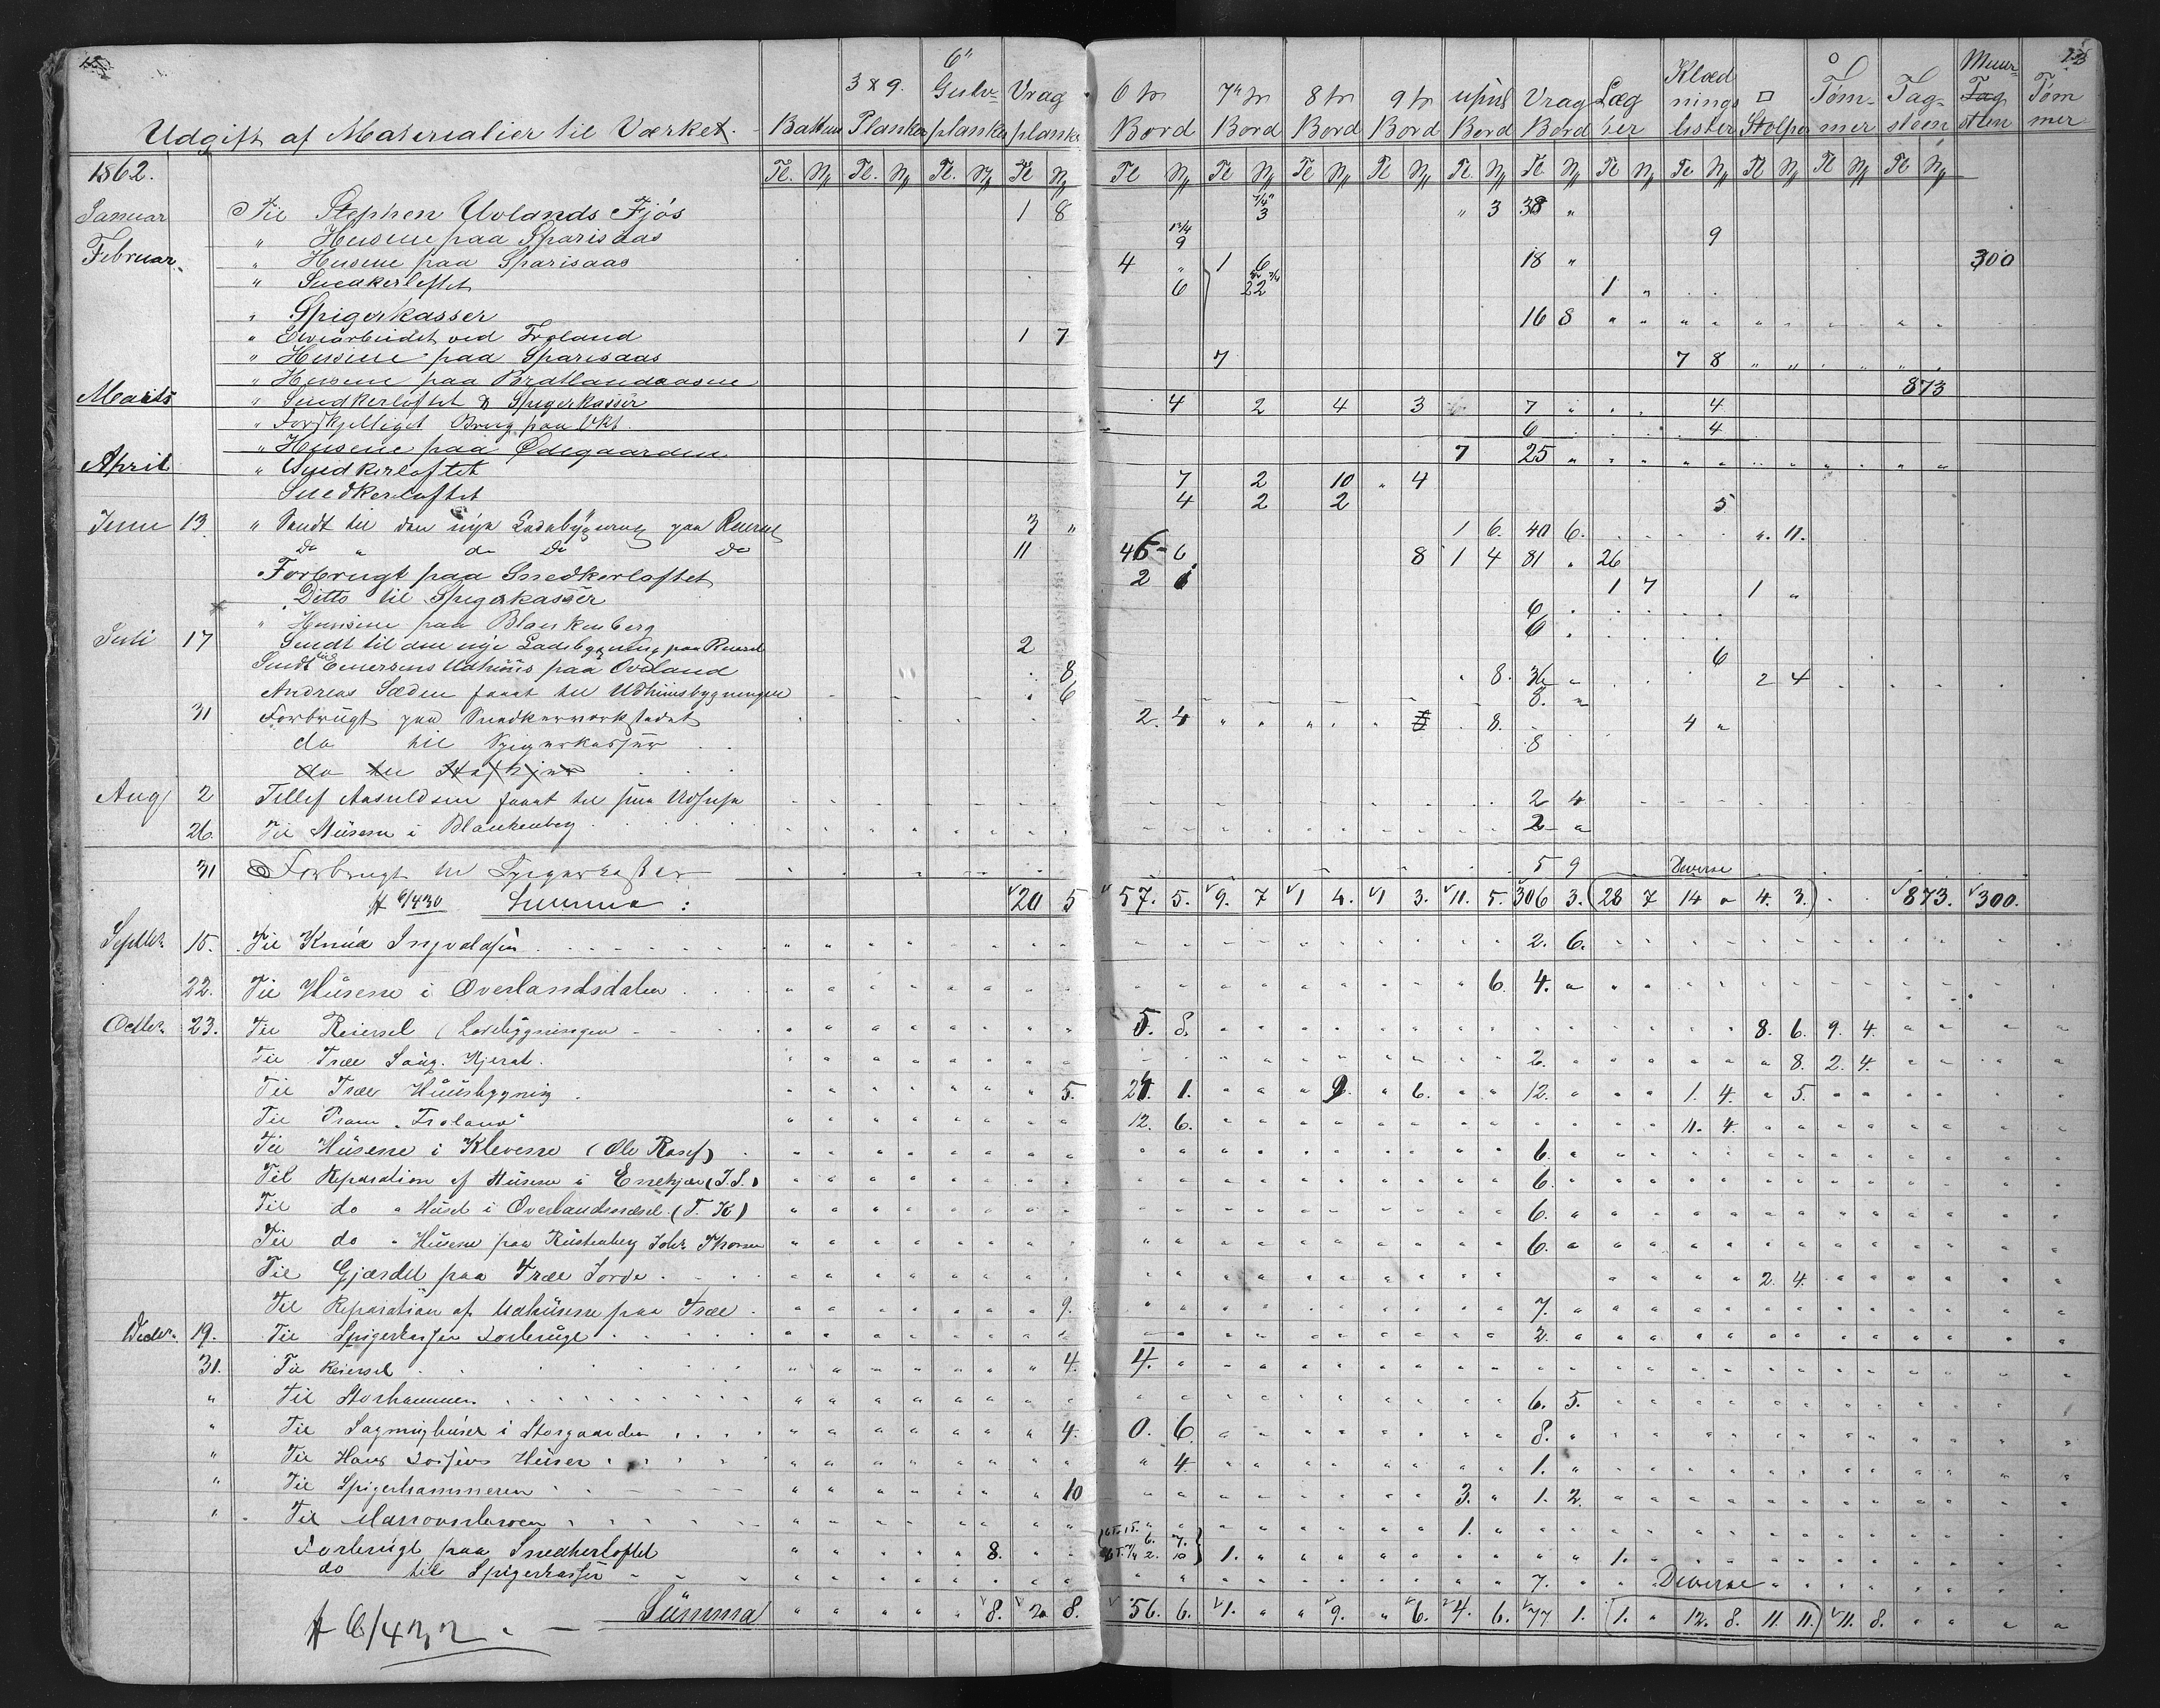 Udgift af Materialier til Værket. Battens 3 x 9. Planker 6" Gulvplanker Vragplanker 6 tr Bord 7" tr Bord 8 tr Bord 9 tr Bord upud Bord Vrag Bord Lægter Klædningslister □ Stolper Tømmer Tagsteen Muursteen Tømmer
1862. Tl. N Tl. N Tl. N Tl N Tl N Tl N Tl N Tl N Tl. N Tl. N Tl N Tl N Tl N Tl N Tl N
Januar Til Stephen Uvlands Fjös 1 8 7/4" 3 " 3 38 "
" Husene paa Sparisaas 12/4 9 9
Februar. " Husene paa Sparisaas 4 " 1 6 18 " 300
" Snedkerloftet 6 22 1 "
" Spigerkasser 16 8
" Elvearbeidet ved Froland 1 7
" Husene paa Sparisaas 7 7 8
" Husene paa Bratlandsaasne 873
Marts " Snedkerloftet & Spigerkasser 4 2 4 3 7 4
" Forskjelligt Brug paa Vkt. 6 4
" Husene paa Ødegaarden 7 25 "
April " Snedkerloftet 7 2 10 " 4
Snedkerloftet 4 2 2 5
Juni 13. " Sendt til den nye Ladebygning paa Reiersel 3 " 1 6. 40 6. ". 11.
do " do do do 11 46 6 8 1 4 81 . 26
Forbrugt paa Snedkerloftet 2 1 7 1 "
Ditto til Spigerkasser 6
" Husene paa Blankenberg 6
Juli 17 Sendt til den nye Ladebygning paa Reiersel 2 6
Sendt til Einersens Udhuus paa Oveland 8 . 8. 36 " 2 4
Andreas Sæden faaet til Udhuusbygningen 6 8. "
31 Forbrugt paa Snedkerværkstedet 2. 4 8. 4 "
do til Spigerkasser 8
do til
Aug 2 Tellef Aasuldsen faaet til sin Udhuse 2 4
26. Til Husene i Blankenberg 2 "
31 Forbrugt til Spigerkasser 5 9 Diverse
ff 6/430 Summa : 20 5 57. 5. 9. 7 1 4. 1 3. 11. 5. 306 3. (28 7 14 " 4. 3.) 873. 300.
Septbr. 15. Til Knud Ingvaldsen 2. 6.
22. Til Husene i Overlandsdalen 6. 4. "
Octbr. 23. Til Reiersel (Ladebygningen 5. 8. 8. 6. 9. 4.
Til Træe Saug. Kjerat. 2. 8. 2. 4.
Til Træe Huusbygning 5. 21. 1. 9. 6. 12. 1. 4. " 5.
Til Pram "Froland" 12. 6. 11. 4.
Til Husene i Klevene (Ole Rosef) 6.
Til Reparation af Husene i Enekjær (J. S.) 6.
Til do " Huset i Overlandsnæset (T. K) 6.
Til do " Husene paa Rustenberg Johs Thorsen 6.
Til Gjærdet paa Træe Jorde 2. 4.
Til Reparation af Udhusene paa Træe 9. 7.
Decbr. 19. Til Spigerkasser Forbrugt 2.
31. Til Reiersel 4. 4. "
" Til Storhammeren 6. 5.
" Til Sagmughuset i Storgaarden 4. 0. 6. 8.
" Til Hans Huser " 4. 1.
" Til Spigerhammeren 10 3. " 1. 2.
" Til 1.
Forbrugt paa Snedkerloftet 8. 6. 7. 2. 10 1. 1.
do til Spigerkasser 7. Diverse
ff 6/432 Summa 8. 2 8. 56. 6. 1. " 9. " 6. 4. 6. 77 1. (1. " 12. 8. 11. 11.) 11. 8.